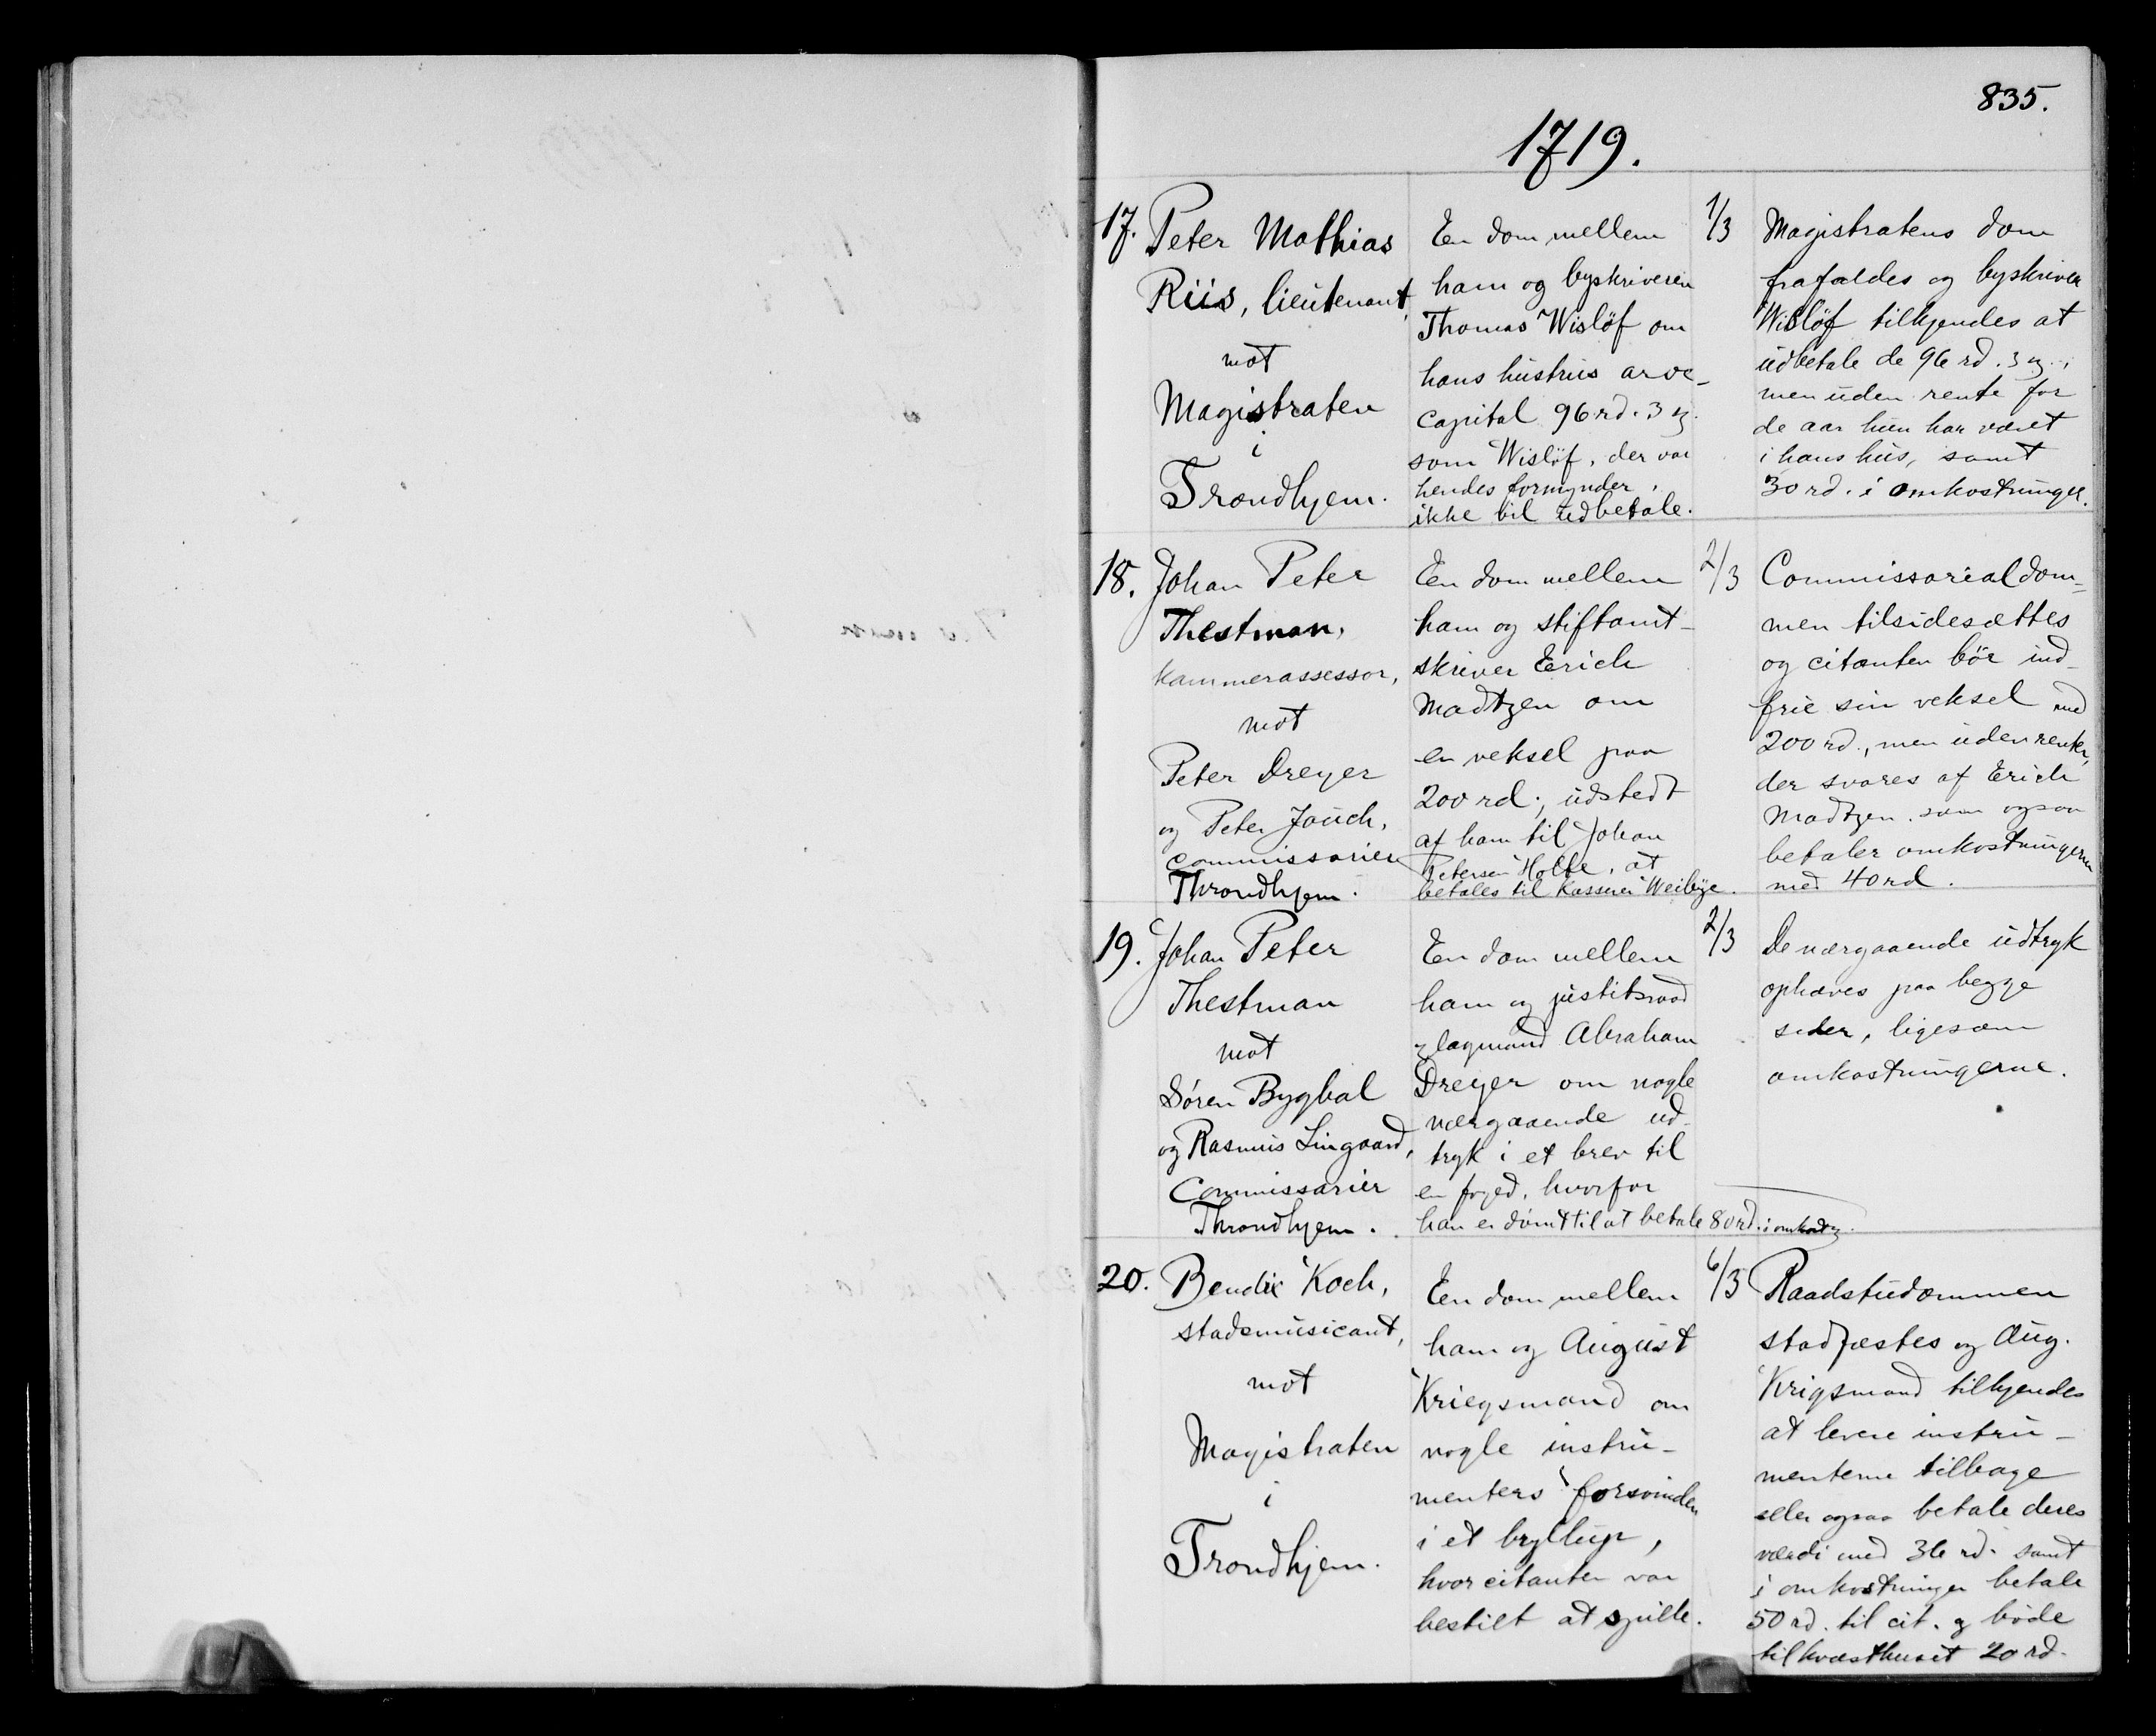 835.
1719.
17. Peter Mathias
Riis, lieutenant,
mot
Magistraten
i
Trondhjem.
En dom mellem
ham og byskriveren
Thomas Wislöf om
hans hustrus arve-
capital 96 rd. 3 ɱ.
som Wislöf, der var
hendes formynder,
ikke vil udbetale.
1/3
Magistratens dom
frafaldes og byskriver
Wislöf tilkjendes at
udbetale de 96 rd. 3 ɱ.,
men uden rente for
de aar hun har været
i hans hus, samt
30 rd. i omkostninger.
18. Johan Peter
Thestman,
kammerassessor,
mot
Peter Dreyer
og Peter Jauch,
commissarier
Throndhjem.
En dom mellem
ham og stiftamt-
skriver Erich
Madtzen om
en veksel paa
200 rd., udstedt
af ham til Johan
Petersen Holte, at
betales til Kasserer Weibye.
2/3
Commissarialdom-
men tilsidesættes
og citanten bör ind-
frie sin veksel med
200 rd., men uden renter,
der svares af Erich
Madtzen. som ogsaa
betaler omkostningerne
med 40 rd.
19. Johan Peter
Thestman
mot
Sören Bygbal
og Rasmus Lingaard,
Commissarier
Throndhjem.
En dom mellem
ham og justitsraad
og lagmand Abraham
Dreyer om nogle
nærgaaende ud-
tryk i et brev til
en foged, hvorfor
han er dömt til at betale 80 rd. i omkostn.
2/3
De nærgaaende udtryk
ophæves paa begge
sider, ligesom
omkostningerne.
20. Bendix Koch,
stadsmusicant,
mot
Magistraten
i
Trondhjem.
En dom mellem
ham og August
Kriegsmand om
nogle instru-
menters forsvinden
i et bryllup,
hvor citanten var
bestilt at spille.
6/3
Raadstudommen
stadfæstes og Aug.
Krigsmand tilkjendes
at levere instru-
menterne tilbage
eller ogsaa betale deres
værdi med 36 rd. samt
i omkostninger betale
50 rd. til cit. og böde
til kvæsthuset 20 rd.